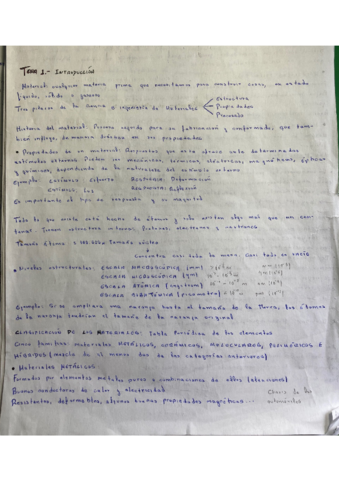 TEMA 1.- INTRODUCCIÓN
Material: cualquier materia prima que necesitamos para construir cosas, en estado
líquido, sólido o gaseoso
Estructura
Tres pilares de la Ciencia e ingeniería de Materiales Propiedades
Procesado
Historia del material: Proceso seguido para su fabricación y conformado, que tam-
bién influye de manera drástica en sus propiedades
• Propiedades de un material: Respuestas que este ofrece ante determinados
estímulos externos. Pueden ser mecánicos, térmicos, eléctricos, magnéticos, ópticos
y químicos, dependiendo de la naturaleza del estímulo externo
Ejemplo: ESTÍMULO: Esfuerzo RESPUESTA: Deformación
ESTÍMULO: Luz RESPUESTA: Reflexión
Es importante el tipo de respuesta y su magnitud
Todo lo que existe está hecho de átomos y sólo existen algo más que un cen-
tenar. Tienen estructura interna: Protones, electrones y neutrones
Tamaño átomo = Tamaño núcleo
Concentra casi toda la masa. Casi todo es vacío
• Niveles estructurales: ESCALA MACROSCÓPICA (mm)
ESCALA MICROSCÓPICA (µm)
ESCALA ATÓMICA (angstrom)
ESCALA SUBATÓMICA (picómetro)
Ejemplo: Si se ampliara una naranja hasta el tamaño de la Tierra, los átomos
de la naranja tendrían el tamaño de la naranja original
CLASIFICACIÓN DE LOS MATERIALES: Tabla Periódica de los elementos
Cinco familias materiales: METÁLICOS, CERÁMICOS, POLIMÉRICOS E
HÍBRIDOS (mezcla de al menos dos de las categorías anteriores)
• Materiales METÁLICOS
Formados por elementos metálicos puros o combinaciones de ellos (aleaciones)
Buenos conductores de calor y electricidad
Resistentes, deformables, algunos buenas propiedades magnéticas...